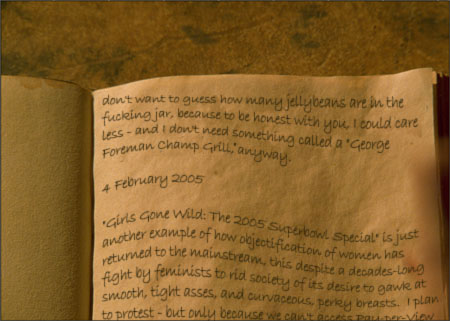 don't want to guess how many jellybeans are in the
fucking jar, because to be honest with you, I could care
less - and I don't need something called a "George
Foreman Champ Grill," anyway.
4 February 2005
"Girls Gone Wild: The 2005 Superbowl Special" is just
another example of how objectification of women has
returned to the mainstream, this despite a decades-long
fight by feminists to rid society of its desire to gawk at
smooth, tight asses, and curvaceous, perky breasts. I plan
to protest - but only because we can't access Pay-per-View